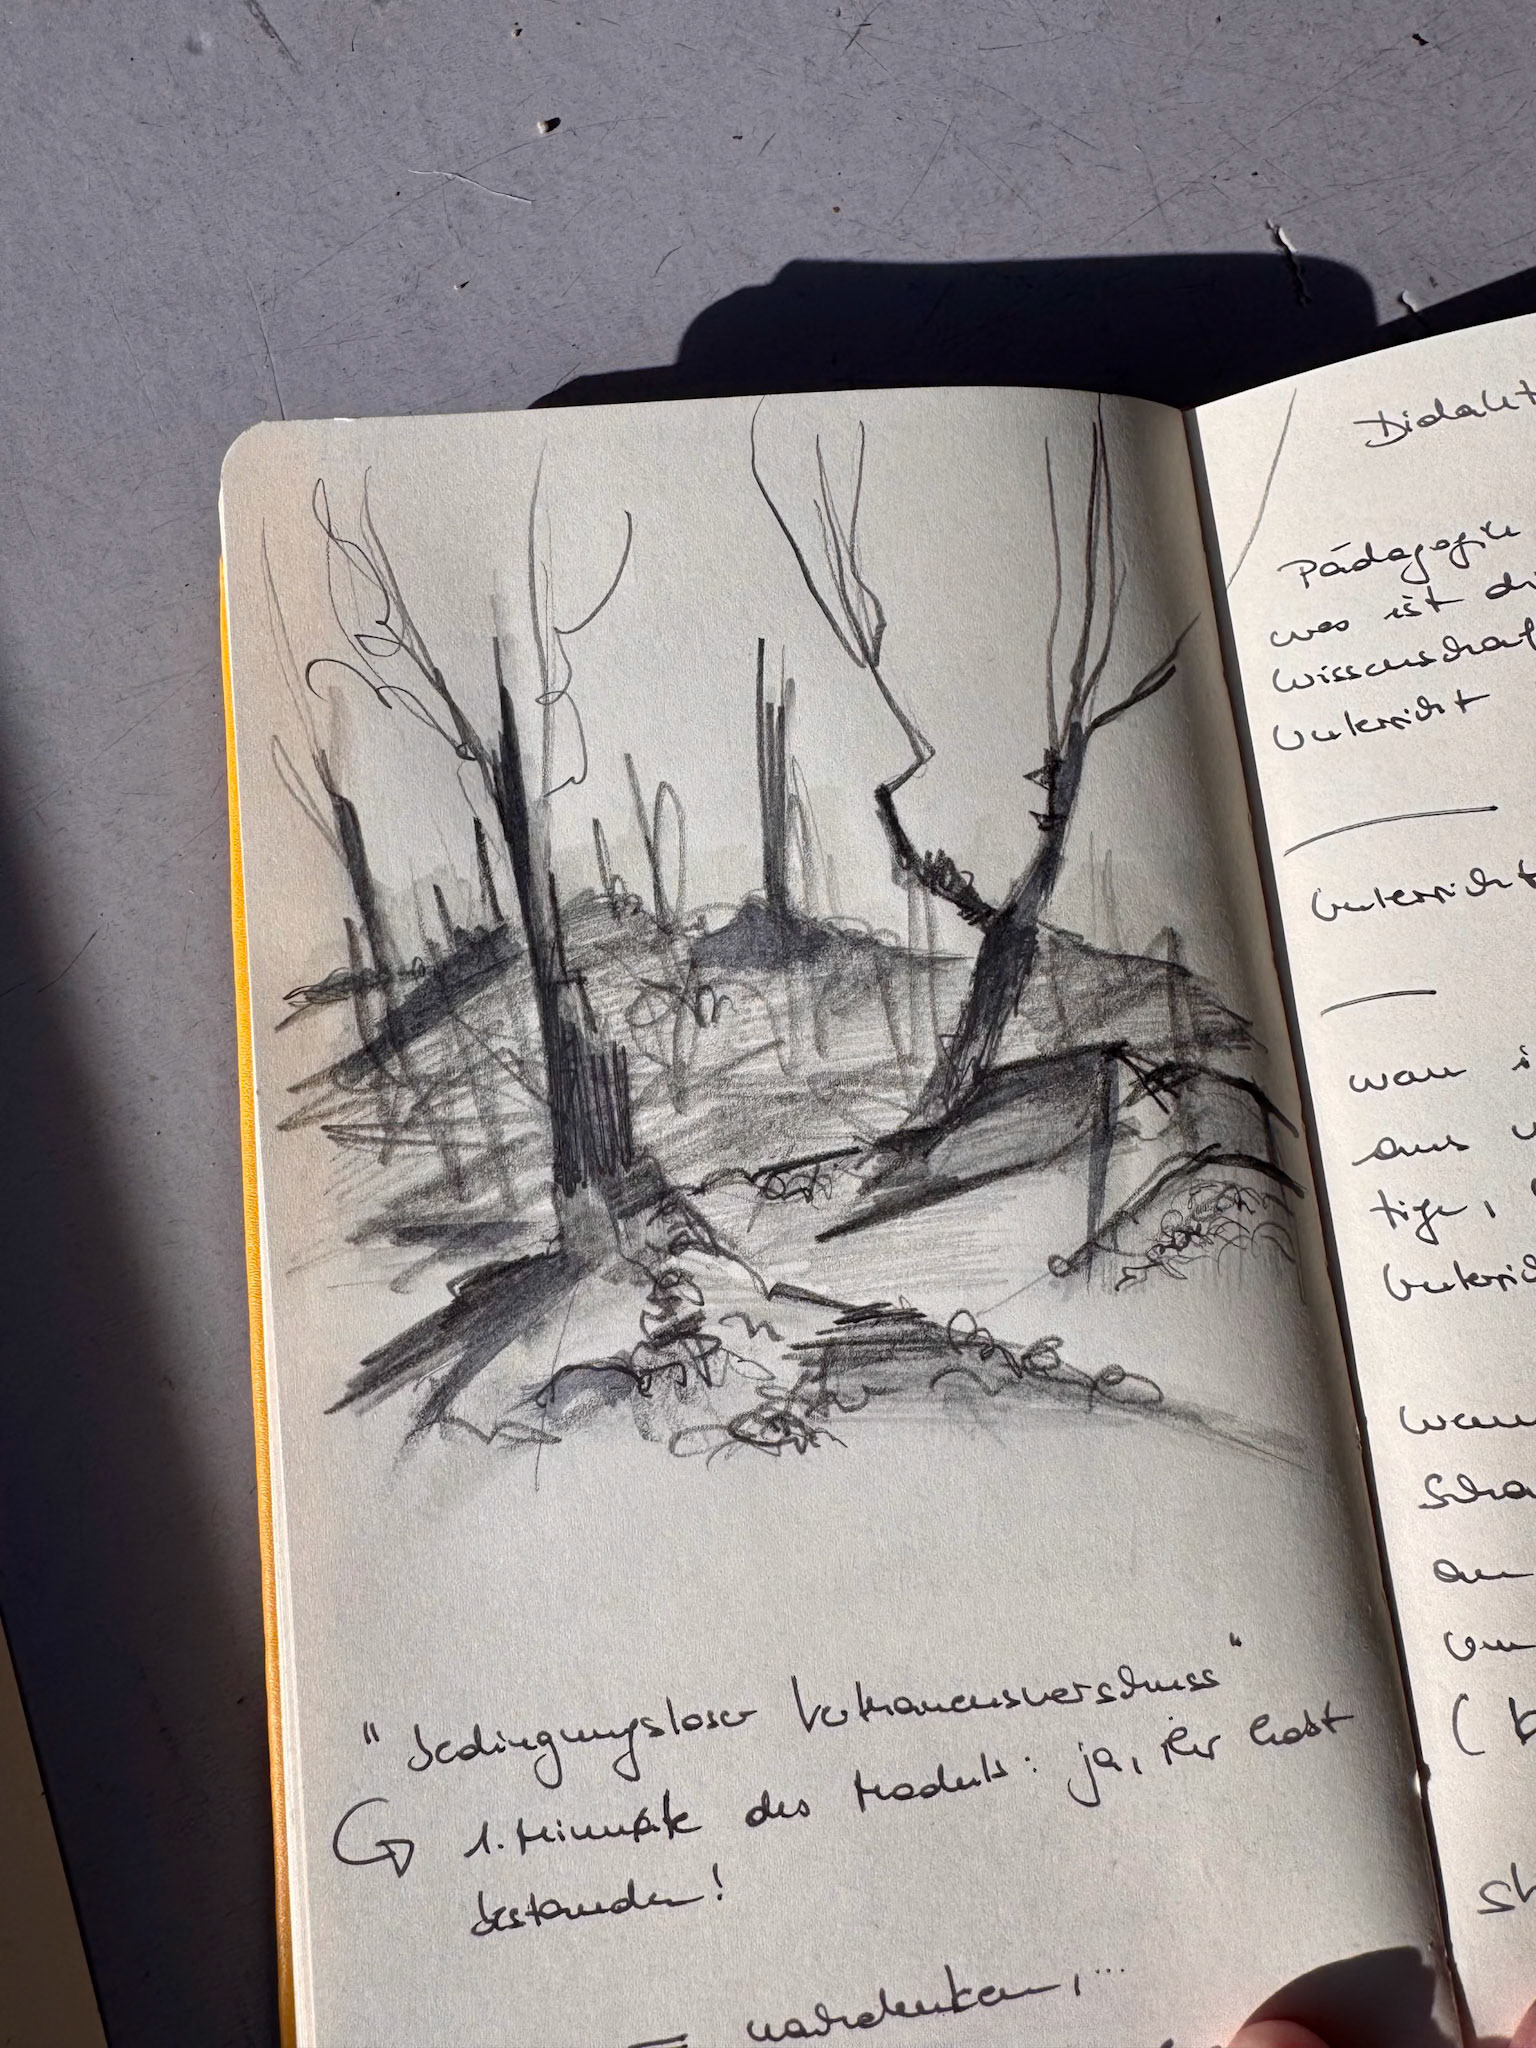 "bedingungsloser Vertrauensvorschuss"
1. Minute des Moduls: ja, ihr habt
bestanden!
= nachdenken, ...
Didakt
Pädagogik
was ist di
Wissenschaf
Unterricht
Unterricht
wan i
aus
tige,
Unterric
an
(